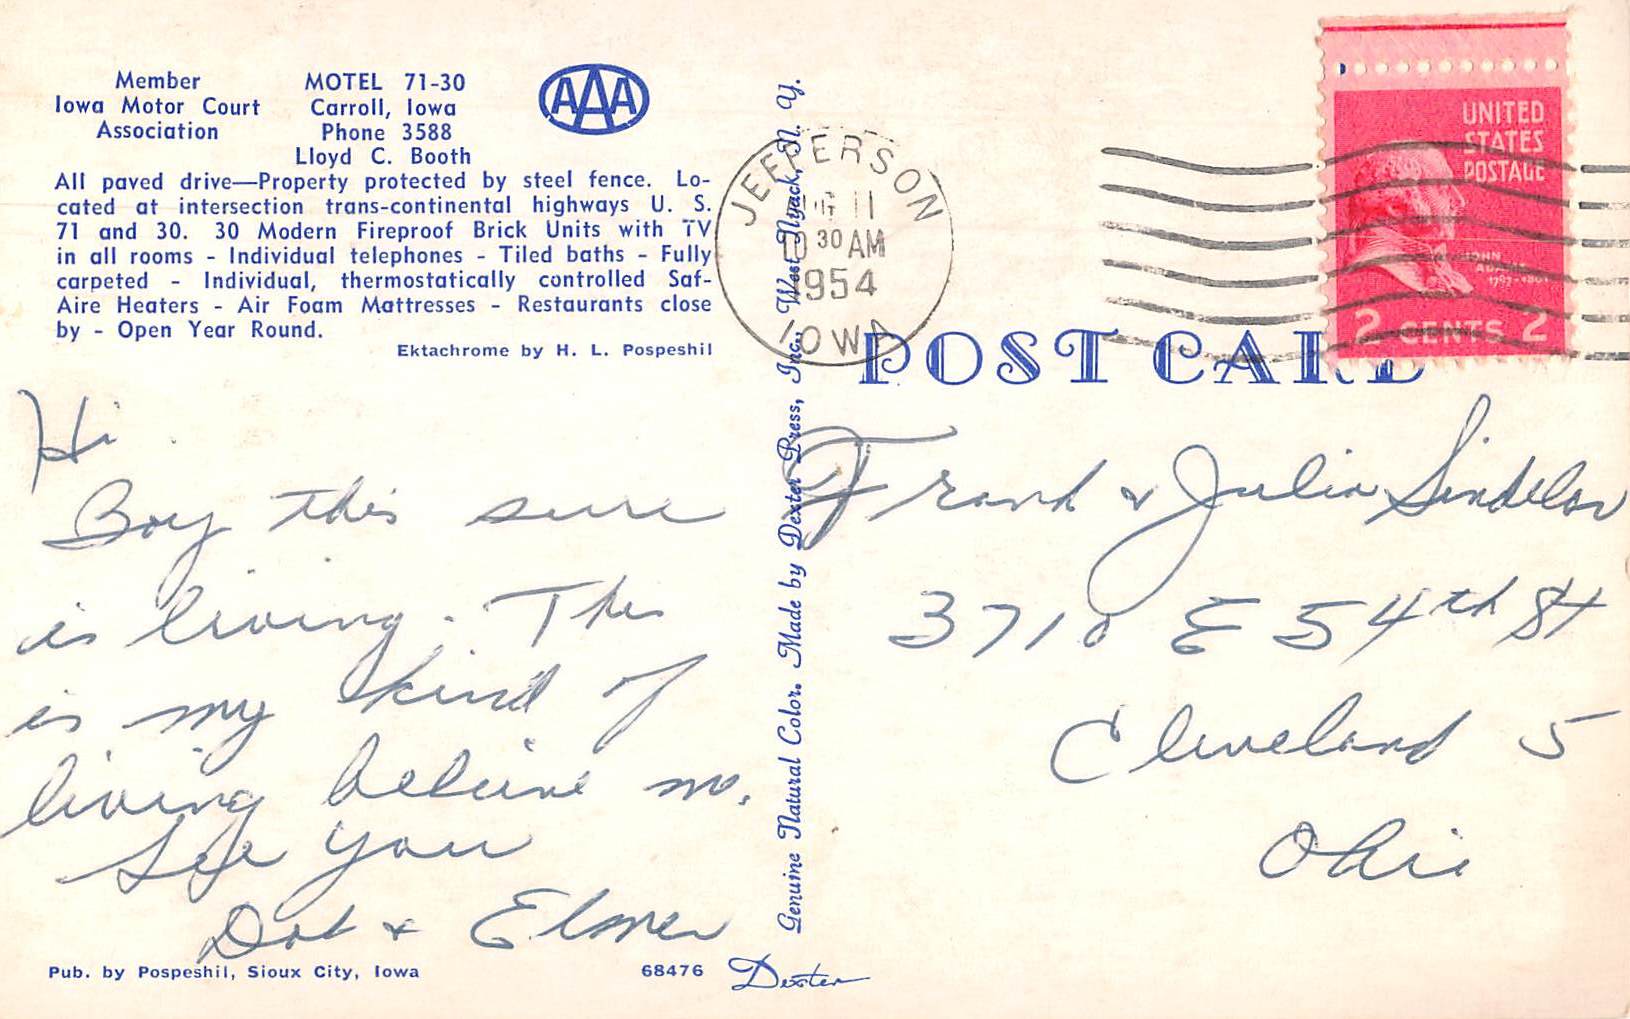 Member
Iowa Motor Court
Association
MOTEL 71-30
Carroll, Iowa
Phone 3588
Lloyd C. Booth
AAA
All paved drive—Property protected by steel fence. Lo-
cated at intersection trans-continental highways U. S.
71 and 30. 30 Modern Fireproof Brick Units with TV
in all rooms - Individual telephones - Tiled baths - Fully
carpeted - Individual, thermostatically controlled Saf-
Aire Heaters - Air Foam Mattresses - Restaurants close
by - Open Year Round.
Ektachrome by H. L. Pospeshil
Hi
Boy this sure
is living. This
is my kind of
living beleive me.
See you
Dot & Elmer
Pub. by Pospeshil, Sioux City, Iowa
68476
Dexter
Genuine Natural Color. Made by Dexter Press, Inc., West Nyack, N. Y.
JEFFERSON
AUG 11
10 30 AM
1954
IOWA
POST CARD
UNITED
STATES
POSTAGE
JOHN
ADAMS
1797-1801
2 CENTS 2
Frank & Julia Sindelar
3710 E 54th St
Cleveland 5
Ohio